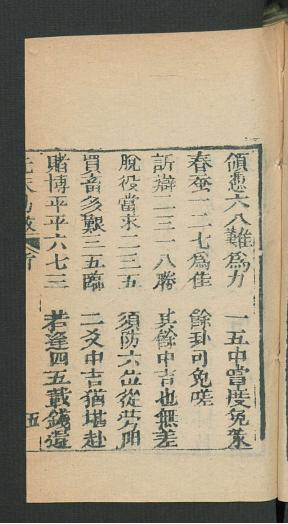 領憑六八難為力 一五中當度免策
春蚕一二七為佳 餘卦可免嗟
訴辯二三一八勝 其餘中吉也無差
脫役當求二三五 須防六位從
買畜多艱三五臨 二爻中吉猶堪赴
賭博平平六七三 若逢四五載錢還
五